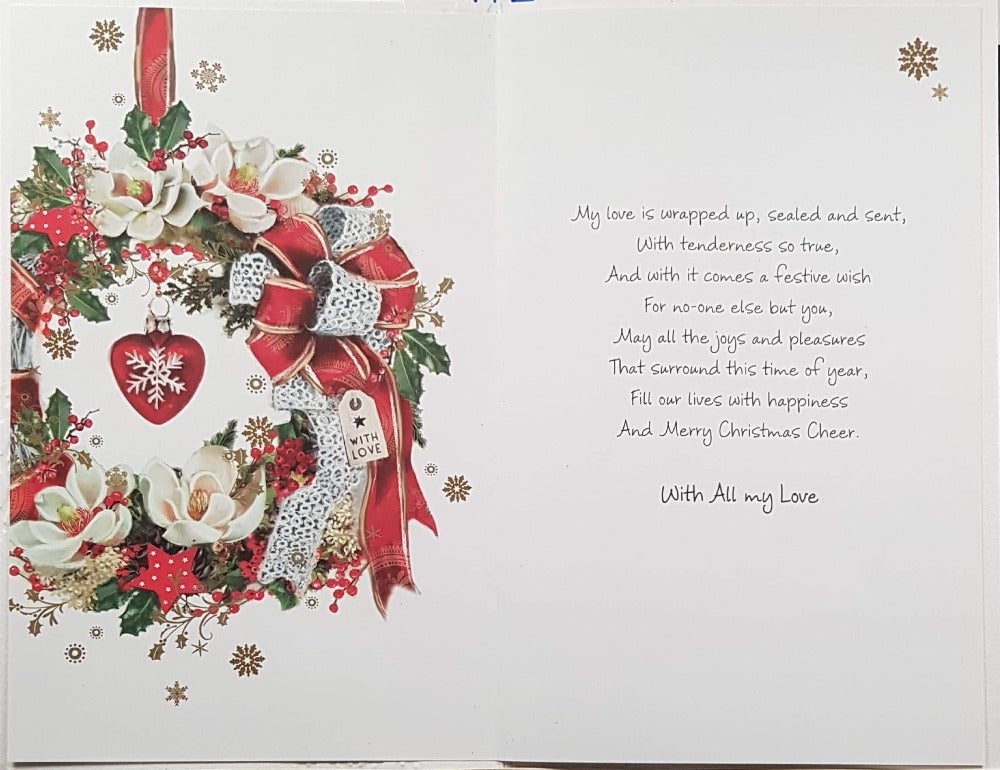 WITH
LOVE
My love is wrapped up, sealed and sent,
With tenderness so true,
And with it comes a festive wish
For no-one else but you,
May all the joys and pleasures
That surround this time of year,
Fill our lives with happiness
And Merry Christmas Cheer.
With All my Love